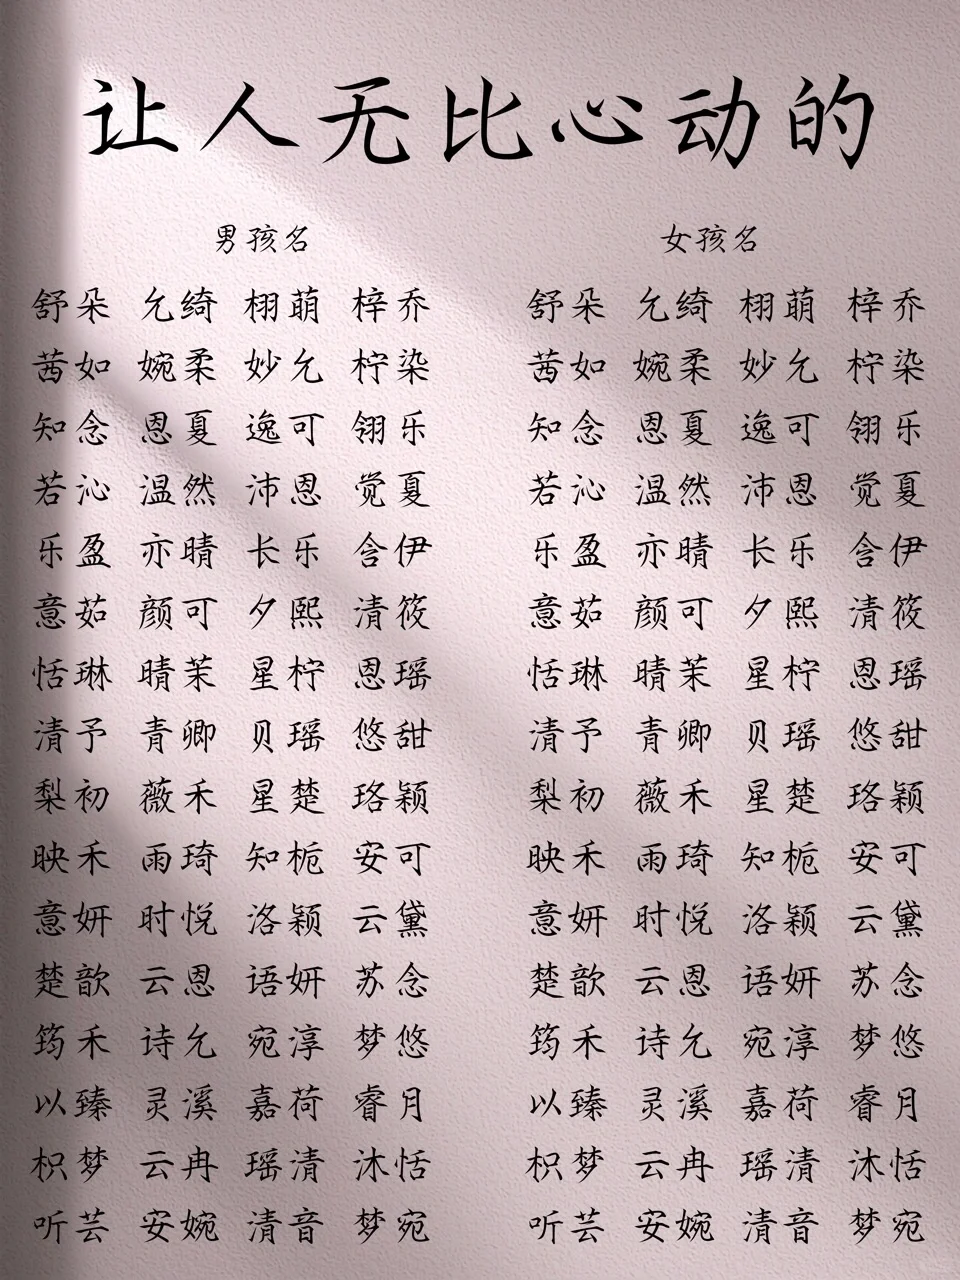 让人无比心动的
男孩名 女孩名
舒朵 允绮 栩萌 梓乔 舒朵 允绮 栩萌 梓乔
茜如 婉柔 妙允 柠染 茜如 婉柔 妙允 柠染
知念 恩夏 逸可 翎乐 知念 恩夏 逸可 翎乐
若沁 温然 沛恩 觉夏 若沁 温然 沛恩 觉夏
乐盈 亦晴 长乐 含伊 乐盈 亦晴 长乐 含伊
意茹 颜可 夕熙 清筱 意茹 颜可 夕熙 清筱
恬琳 晴茉 星柠 恩瑶 恬琳 晴茉 星柠 恩瑶
清予 青卿 贝瑶 悠甜 清予 青卿 贝瑶 悠甜
梨初 薇禾 星楚 珞颖 梨初 薇禾 星楚 珞颖
映禾 雨琦 知栀 安可 映禾 雨琦 知栀 安可
意妍 时悦 洛颖 云黛 意妍 时悦 洛颖 云黛
楚歆 云恩 语妍 苏念 楚歆 云恩 语妍 苏念
筠禾 诗允 宛淳 梦悠 筠禾 诗允 宛淳 梦悠
以臻 灵溪 嘉荷 睿月 以臻 灵溪 嘉荷 睿月
枳梦 云冉 瑶清 沐恬 枳梦 云冉 瑶清 沐恬
听芸 安婉 清音 梦宛 听芸 安婉 清音 梦宛